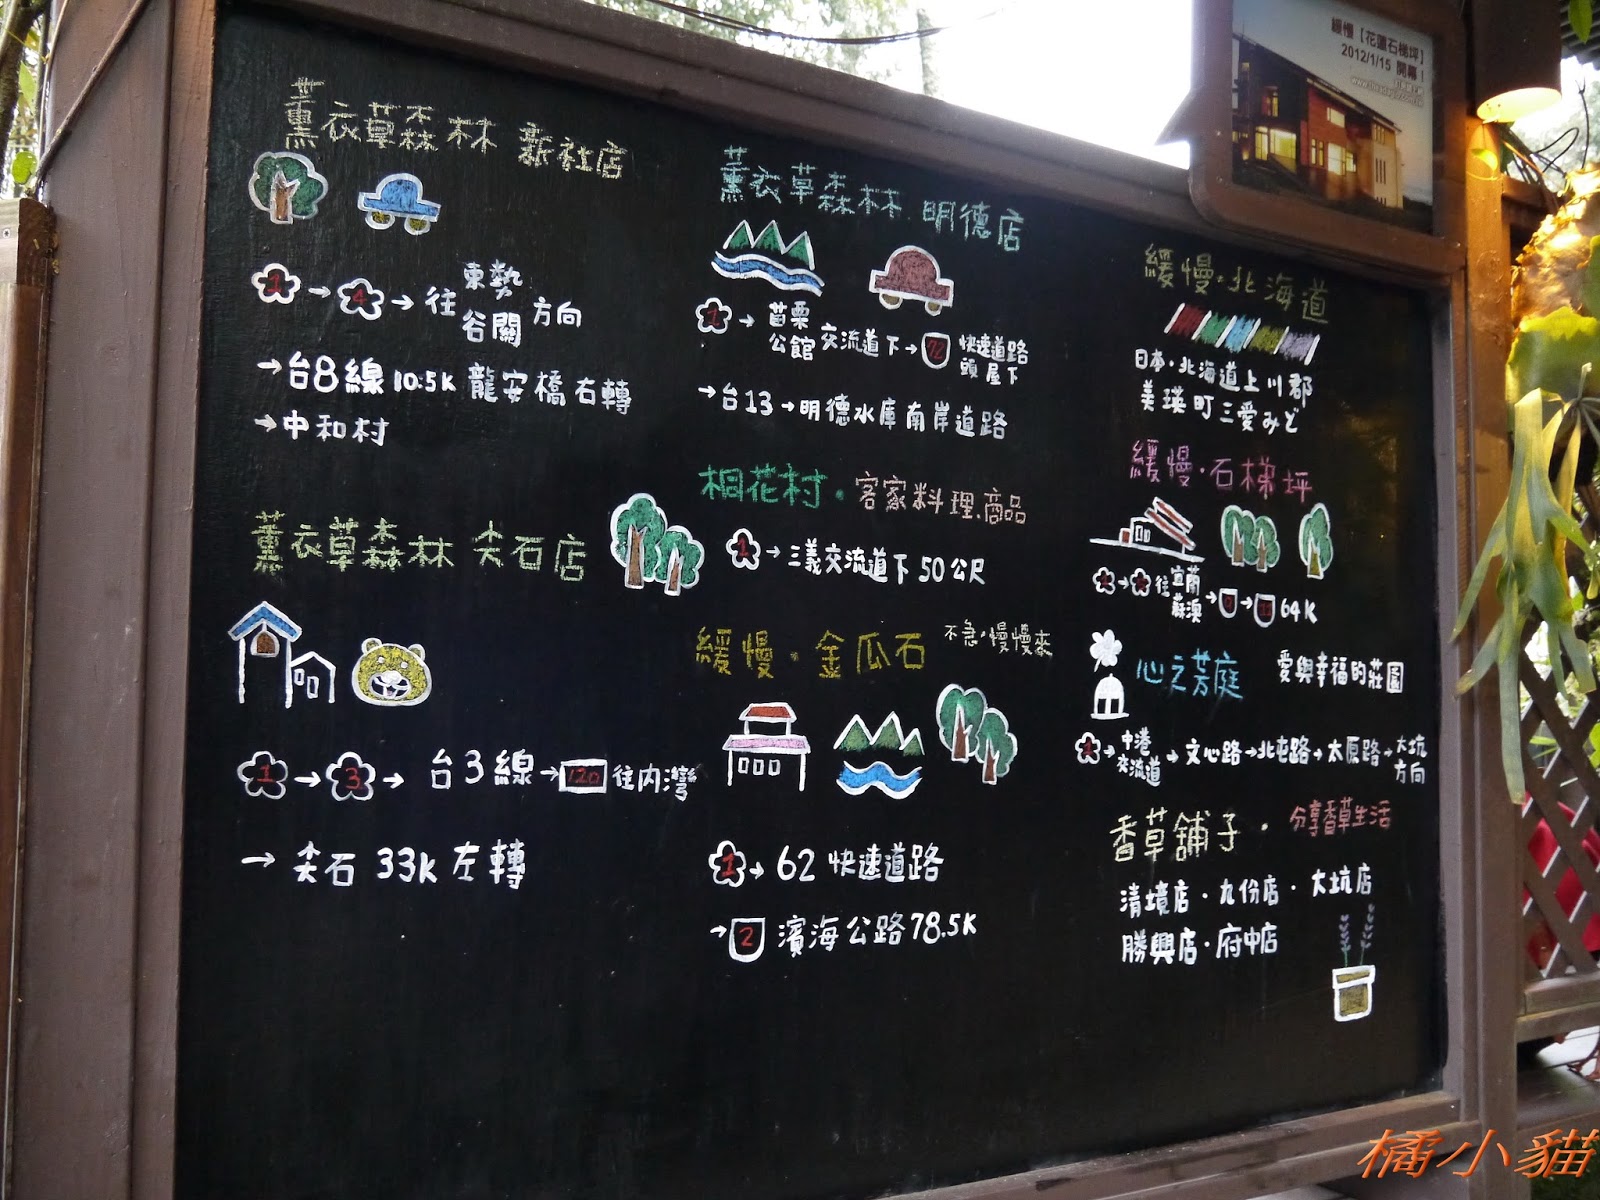 薰衣草森林 新社店
1→4→往東勢谷關方向
→台8線10.5K 龍安橋右轉
→中和村
薰衣草森林 尖石店
1→3→台3線→120往內灣
→尖石 33K 左轉
薰衣草森林.明德店
1→苗栗公館交流道下→72快速道路頭屋下
→台13→明德水庫南岸道路
桐花村·客家料理.商品
1→三義交流道下50公尺
緩慢·金瓜石 不急·慢慢來
1→62快速道路
→2 濱海公路78.5K
緩慢·北海道
日本·北海道上川郡
美瑛町三愛みど
緩慢·石梯坪
往宜蘭蘇澳→9→11 64K
心之芳庭 愛與幸福的莊園
1→中港交流道→文心路→北屯路→太原路→大坑方向
香草舖子·分享香草生活
清境店·九份店·大坑店
勝興店·府中店
緩慢【花蓮石梯坪】
2012/1/15 開幕！
橘小貓